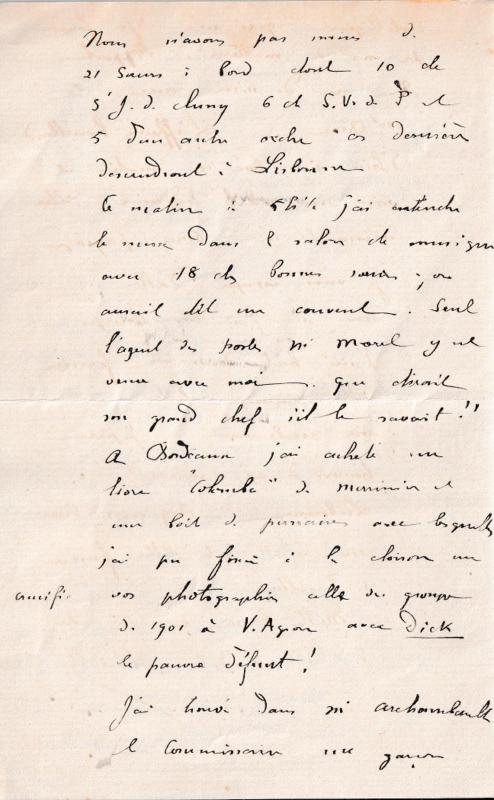 Nous n'avons pas moins de
21 Sœurs à bord dont 10 de
St J. de Cluny 6 de S. V. de P et
5 d'un autre ordre ces dernières
descendront à Lisbonne
Ce matin à 5h½ j'ai entendu
la messe dans le salon de musique
avec 18 des bonnes sœurs ; on
aurait dit un couvent. Seul
l'agent des postes M Morel y est
venu avec moi. que dirait
son grand chef s'il le savait !!
A Bordeaux j'ai acheté un
livre "Colomba" de Mérimée et
une boîte de punaises avec lesquelles
j'ai pu fixer à la cloison un
crucifix vos photographies celle du groupe
de 1901 à V. Agron avec Dick
le pauvre défunt !
J'ai trouvé dans M Archambault
le Commissaire un garçon